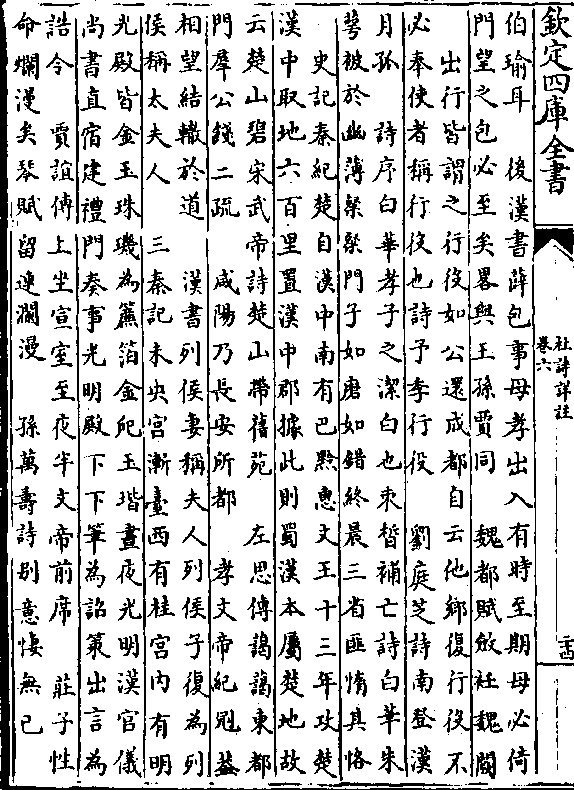 欽定四庫全書
杜詩詳註
卷六
二十四
伯瑜耳　後漢書薛包事母孝出入有時至期母必倚
門望之包必至矣畧與王孫賈同　魏都賦斂衽魏闕
出行皆謂之行役如公還成都自云他鄉復行役不
必奉使者稱行役也詩予季行役　劉庭芝詩南登漢
月孤　詩序白華孝子之潔白也束皙補亡詩白華朱
萼被於幽薄粲粲門子如磨如錯終晨三省匪惰其恪
史記秦紀楚自漢中南有巴黔惠文王十三年攻楚
漢中取地六百里置漢中郡據此則蜀漢本屬楚地故
云楚山碧宋武帝詩楚山帶舊苑　左思傳藹藹東都
門羣公餞二疏　咸陽乃長安所都　孝文帝紀冠葢
相望結轍於道　漢書列侯妻稱夫人列侯子復為列
侯稱太夫人　三秦記未央宫漸臺西有桂宫内有明
光殿皆金玉珠璣為簾箔金戺玉堦晝夜光明漢官儀
尚書直宿建禮門奏事光明殿下下筆為詔策出言為
誥令　賈誼傳上坐宣室至夜半文帝前席　莊子性
命爛漫矣琴賦留連瀾漫　孫萬壽詩别意悽無已